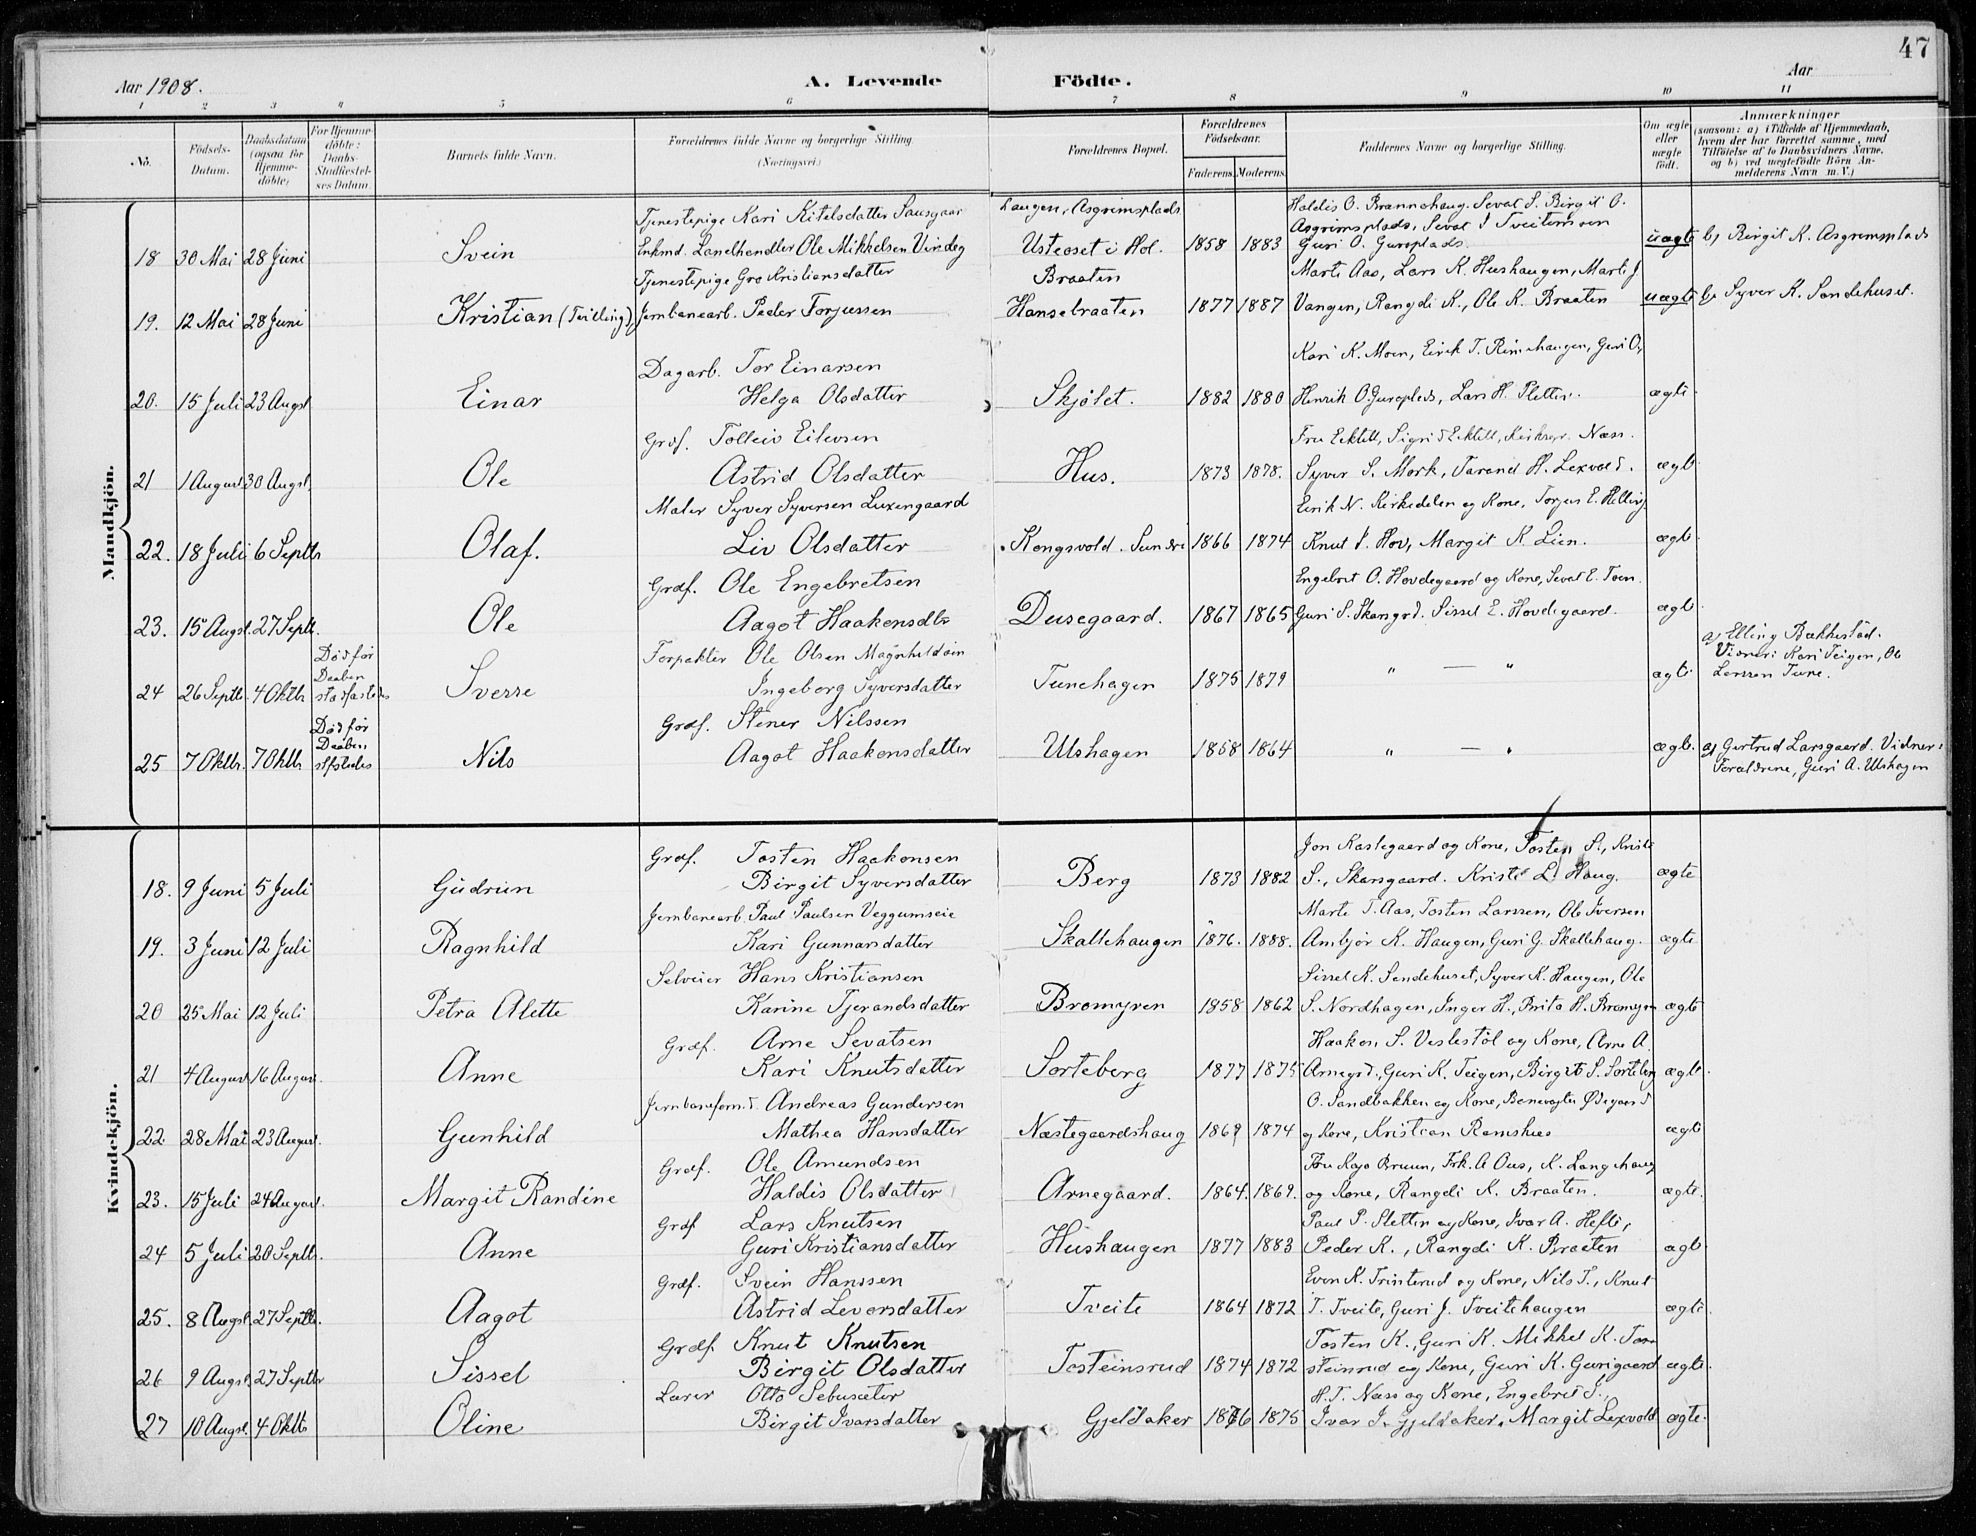 47
Aar 1908.
A. Levende Födte.
Aar
1 2 3 4 5 6 7 8 9 10 11
No.
Födsels-Datum.
Daabsdatum (ogsaa for Hjemme-döbte)
For Hjemme-döbte: Daabs-Stadfæstel-ses Datum.
Barnets fulde Navn.
Forældrenes fulde Navne og borgerlige Stilling (Næringsvei)
Forældrenes Bopæl.
Forældrenes Födselsaar.
Faderens. Moderens.
Faddernes Navne og borgerlige Stilling.
Om ægte eller uægte födt.
Anmærkninger
(saasom: a) i Tilfælde af Hjemmedaab, hvem der har forrettet samme, med Tilföielse af to Daabsvidners Navne, og b) ved uegtefödte Börn Anmelderens Navn m. V.)
Mandkjön.
Tjenestepige Kari Kitelsdatter Sausgaar Laugen, Asgrimsplads Haldis O. Brannehaug. Sevat S. Birgit O.
Asgrimsplads, Sevat
18 30 Mai 28 Juni Svein Enkmd. Landhandler Ole Mikkelsen Usteoset i Hol. 1858 1883 Guri O. Guroplads. uægte b) Birgit K. Asgrimsplads
Tjenestepige Gro Kristiansdatter Braaten Marti Aas, Lars K. Hushaugen, Marti J
19. 12 Mai 28 Juni Kristian (Tvilling), Jernbanearb. Peder Torjussen Hansebraaten 1877 1887 Vangen, Rangdi K., Ole K. Braaten uægte b) Syver K. Sondehuset.
Dagarb. Tor Einarsen Kari K. Moen, Eirik T. Rimehaugen, Guri O,
20. 15 Juli 23 Augst Einar Helga Olsdatter Skjølet. 1882 1880 Henrik O. Guroplads, Lars H. Sletten. ægte
Grdf. Tolleiv Eilevsen Fru Ecktell, Sigrid Ecktell, Kirkesgr. Næss.
21 1 August 30 Augst. Ole Astrid Olsdatter Hus. 1873 1878. Syver S. Mork, Tarand H. Lexvold. ægte
Maler Syver Syversen Luxengaard Eirik N. Kirkedelen og Kone, Torjus E. Relling
22. 18 Juli 6 Septbr Olaf. Liv Olsdatter Kongsvold. Sundre 1866 1874 Knut J. Hov, Margit K. Lien. ægte
Grdf. Ole Engebretsen Engebret O. Hovdegaard og Kone, Sevat E. Toen.
23. 15 Augst. 27 Septbr. Ole Aagot Haakensdtr Dusegaard. 1867 1865 Guri S. Skarsgrd. Sissel E. Hovdegaard. ægte
Forpakter Ole Olsen Magnhildøin
24 26 Septbr. 4 Oktbr Død før Daaben stadfæstedes Sverre Ingeborg Syversdatter Tunehagen 1875 1879 " — " ægte a) Elling Bækkestad. Vidner: Kari Teigen, Ole Larssen Tune.
Grdf. Stener Nilssen
25 7 Oktbr. 7 Oktbr Død før Daaben stfstedes Nils Aagot Haakonsdatter Ulshagen 1858 1864 " — " ægte. a) Gertrud Larsgaard. Vidner: Forældrene, Guri A. Ulshagen
Kvindekjön.
Grdf. Tosten Haakonsen Jon Kastegaard og Kone, Tosten S., Kristi
18. 9 Juni 5 Juli Gudrun Birgit Syversdatter Berg 1873 1882 S., Skarsgaard. Kristi L. Haug. ægte
Jernbanearb. Paul Paulsen Veggumseie Marte T. Aas, Tosten Larssen, Ole Iversen
19. 3 Juni 12 Juli Ragnhild Kari Gunnarsdatter Skallehaugen 1876. 1888. Ambjør K. Haugen, Guri G. Skallehaug. ægte
Selveier Hans Kristiansen Sissel K. Sendehuset, Syver K. Haugen, Ole
20 25 Mai 12 Juli Petra Alette Karine Tjerandsdatter Bromyren 1858 1862 S. Nordhagen, Inger H., Brita H. Bromyren ægte
Grdf. Arne Sevatsen Haakon S. Veslestøl og Kone, Arne A.
21 4 August 16 August. Anne Kari Knutsdatter Sorteberg 1877 1875 Arnegrd., Guri K. Teigen, Birgit S. Sorteberg ægte.
Jernbaneformd. Andreas Gundersen O. Sandbakken og Kone, Banevogter Ødegaard
22 28 Mai 23 August. Gunhild Mathea Hansdatter Næstegaardshaug 1869 1874 og Kone, Kristian Ramshus ægte
Grdf. Ole Amundsen Fru Kaja Bruun, Frk. A. Ous, K. Langehaug
23. 15 Juli 24 August. Margit Randine Haldis Olsdatter Arnegaard. 1864. 1869. og Kone, Rangdi K. Braaten. ægte.
Grdf Lars Knutsen Paul P. Sletten og Kone, Ivar A. Hefte,
24 5 Juli 20 Septbr. Anne Guri Kristiansdatter Hushaugen 1877 1883 Peder K., Rangdi K. Braaten ægte.
Grdf. Svein Hanssen Even K. Trinterud og Kone, Nils T., Knut
25. 8 Augst. 27 Septbr. Aagot Astrid Leversdatter Tveite 1864 1872 T. Tveito, Guri J. Tveitehaugen ægte
Grdf. Knut Knutsen Tosten K., Guri K. Mikkel K. Tor-
26 9 Augst. 27 Septbr Sissel Birgit Olsdatter Tosteinsrud 1874 1872 steinrud og Kone, Guri K. Gurigaard ægte.
Lærer Otto Sebusæter H. T. Næss og Kone, Engebret I.,
27 10 Augst. 4 Oktbr Oline Birgit Ivarsdatter Gjeldaker 1876 1875 Ivar I. Gjeldaker, Margit Lexvold ægte.